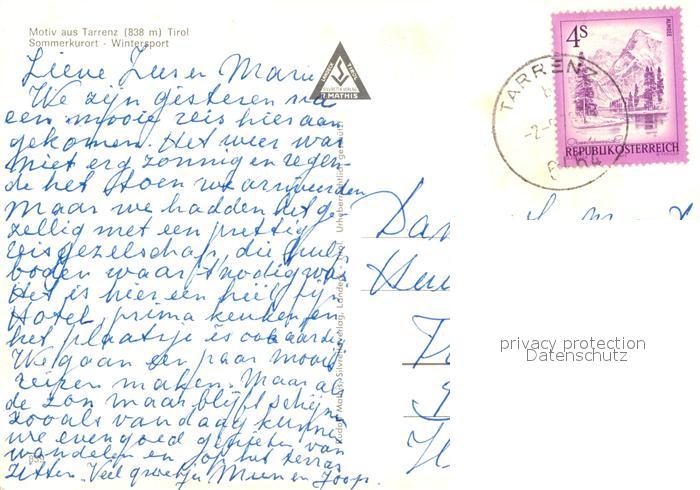 Motiv aus Tarrenz (838 m) Tirol
Sommerkurort - Wintersport
Lieve Zus en Marie
We zijn gisteren na
een mooie reis hier aan
gekomen. Het weer was
niet erg zonnig en regen-
de het toen we arriveerden
maar we hadden het ge-
zellig met een prettig
reisgezelschap, die hulp
boden waar 't nodig was
Het is hier een heel fijn
Hotel, prima keuken, en
het plaatsje is ook aardig
We gaan een paar mooie
reizen maken. Maar als
de zon maar blijft schijnen
zooals vandaag kunnen
we even goed genieten van
wandelen en op het terras
zitten. Veel groetjes Mien en Joop.
T. MATHIS
TARRENZ
4S
REPUBLIK ÖSTERREICH
privacy protection
Datenschutz